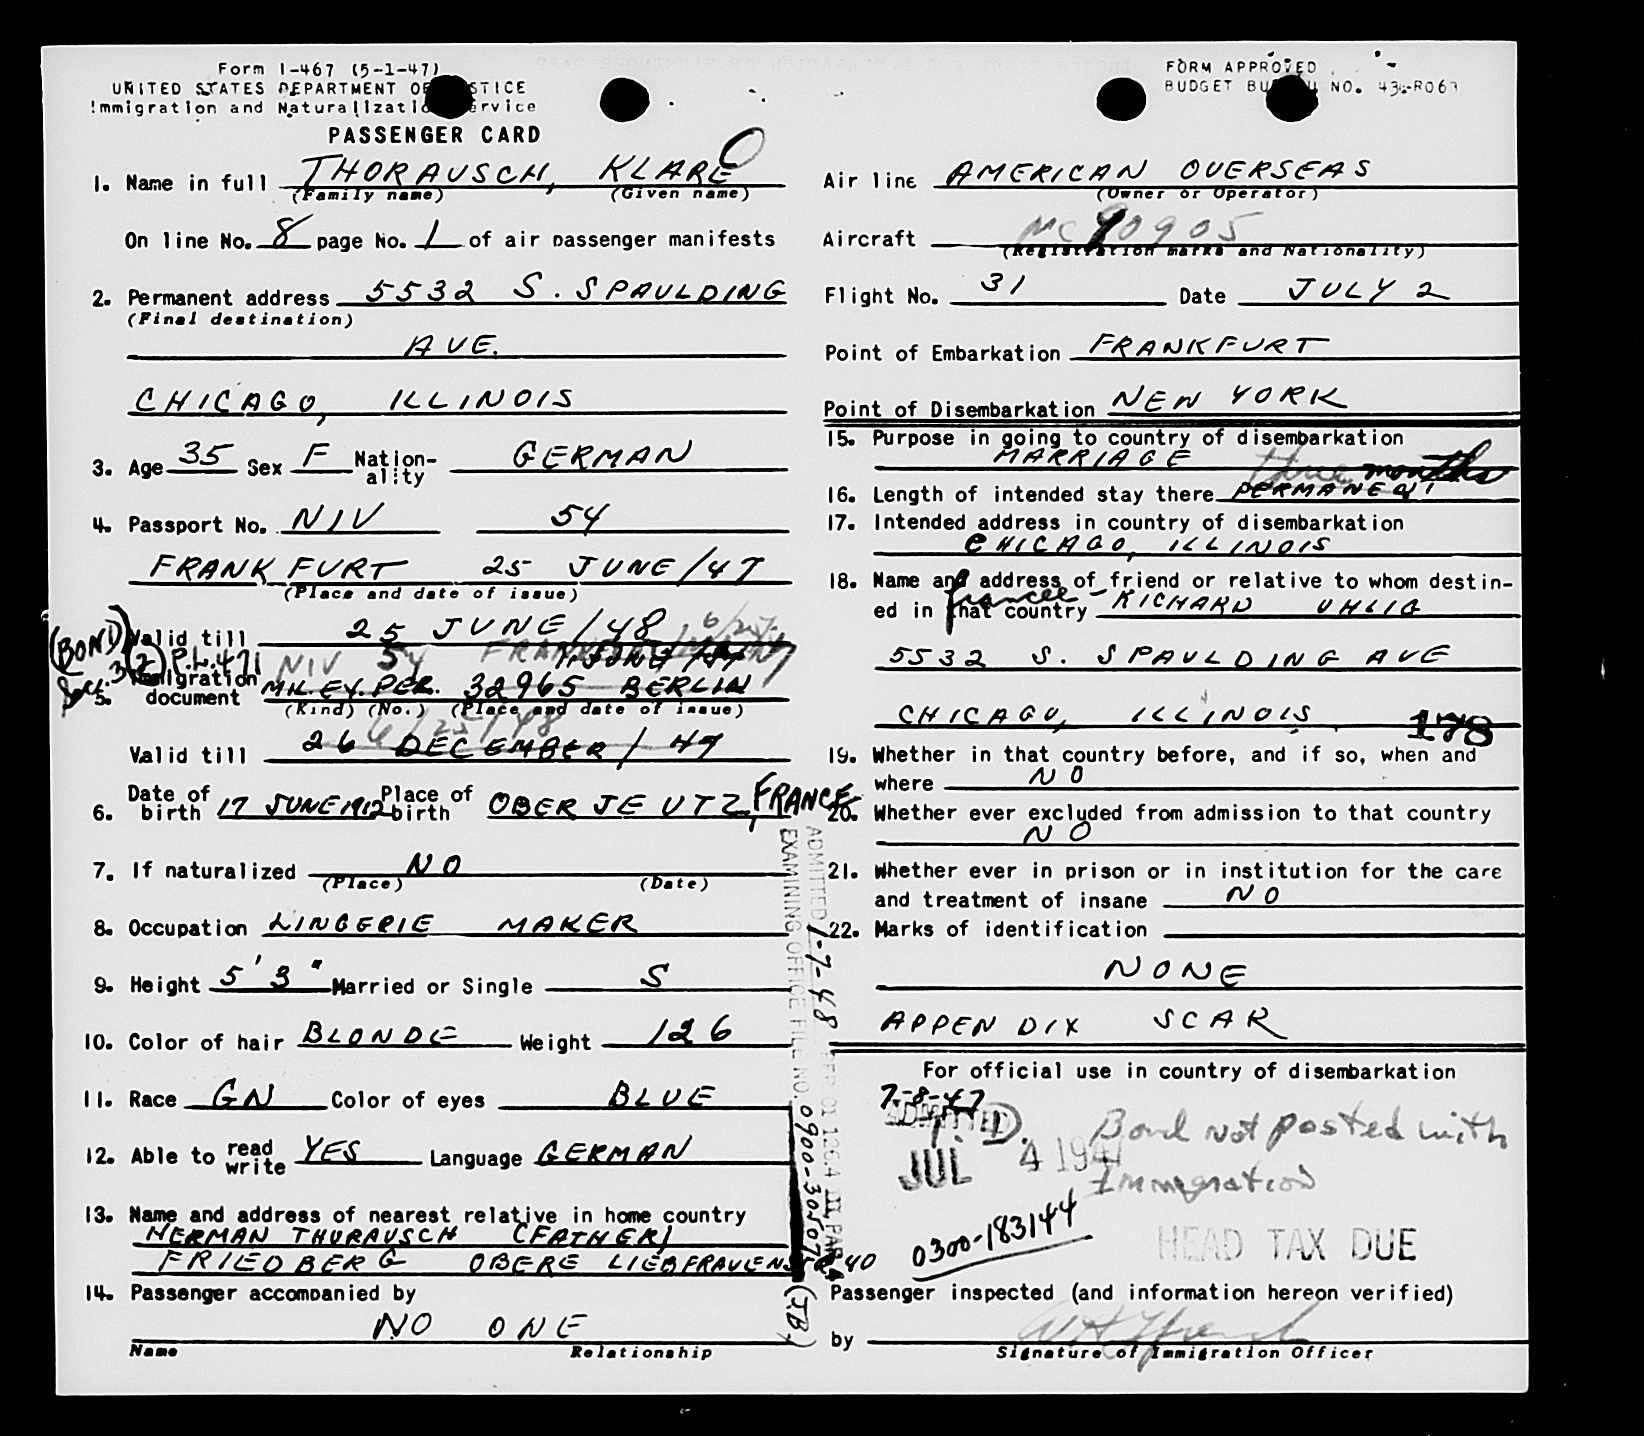 Form I-467 (5-1-47)
UNITED STATES DEPARTMENT OF JUSTICE
Immigration and Naturalization Service
PASSENGER CARD
1. Name in full THORAUSCH, KLARE
(Family name) (Given name)
On line No. 8 page No. 1 of air passenger manifests
2. Permanent address 5532 S. SPAULDING
(Final destination)
AVE.
CHICAGO, ILLINOIS
3. Age 35 Sex F Nation-ality GERMAN
4. Passport No. NIV 54
FRANKFURT 25 JUNE/47
(Place and date of issue)
Valid till 25 JUNE/48
(BOND) P.L. 471
Sec. 3(2)
NIV 54 FRANKFURT
5. Immigration document MIL.EX.PER. 32965 BERLIN
(Kind) (No.) (Place and date of issue)
6/25/48
Valid till 26 DECEMBER/47
6. Date of birth 17 JUNE 1912 Place of birth OBER JEUTZ, FRANCE
7. If naturalized NO
(Place) (Date)
8. Occupation LINGERIE MAKER
9. Height 5' 3" Married or Single S
10. Color of hair BLONDE Weight 126
11. Race GN Color of eyes BLUE
12. Able to read write YES Language GERMAN
13. Name and address of nearest relative in home country
HERMAN THORAUSCH (FATHER)
FRIEDBERG OBERE LIEBFRAUENSTR 40
14. Passenger accompanied by
NO ONE
Name Relationship
ADMITTED 1-7-48
EXAMINING OFFICE FILE NO. 0900-30507
(JB)
FORM APPROVED
BUDGET BUREAU NO. 43-R063
Air line AMERICAN OVERSEAS
(Owner or Operator)
Aircraft NC 90905
(Registration marks and Nationality)
Flight No. 31 Date JULY 2
Point of Embarkation FRANKFURT
Point of Disembarkation NEW YORK
15. Purpose in going to country of disembarkation
MARRIAGE
three months
16. Length of intended stay there PERMANENT
17. Intended address in country of disembarkation
CHICAGO, ILLINOIS
18. Name and address of friend or relative to whom destin-
ed in that country francee - RICHARD UHLIG
5532 S. SPAULDING AVE
CHICAGO, ILLINOIS
178
19. Whether in that country before, and if so, when and
where NO
20. Whether ever excluded from admission to that country
NO
21. Whether ever in prison or in institution for the care
and treatment of insane NO
22. Marks of identification
NONE
APPENDIX SCAR
For official use in country of disembarkation
7-8-47
ADMITTED
T. D.
JUL 4 1947
Bond not posted with
Immigration
0300-183144
HEAD TAX DUE
Passenger inspected (and information hereon verified)
by
Signature of Immigration Officer